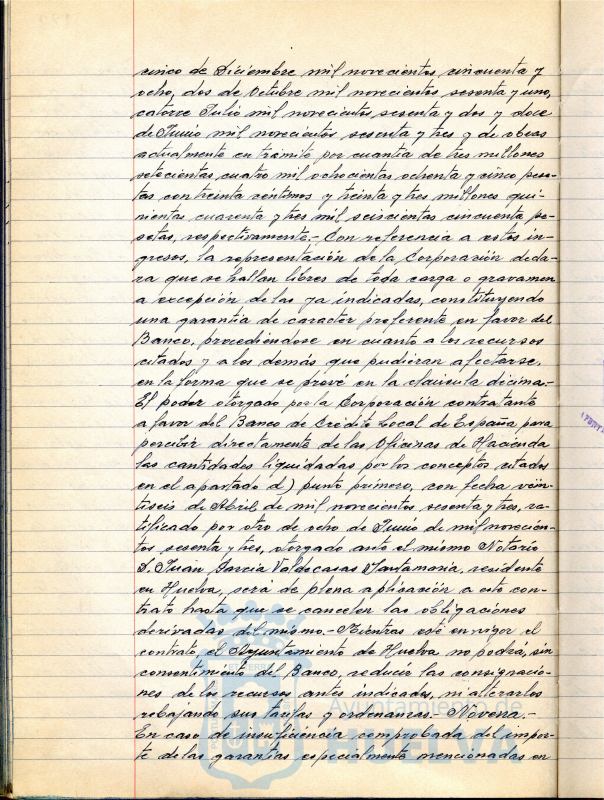 cinco de Diciembre mil novecientos cincuenta y
ocho, dos de Octubre mil novecientos sesenta y uno,
catorce Julio mil novecientos sesenta y dos y doce
de Junio mil novecientos sesenta y tres y de obras
actualmente en trámite por cuantía de tres millones
setecientas cuatro mil ochocientas ochenta y cinco pese-
tas con treinta céntimos y treinta y tres millones qui-
nientas cuarenta y tres mil seiscientas cincuenta pe-
setas, respectivamente.- Con referencia a estos in-
gresos, la representación de la Corporación decla-
ra que se hallan libres de toda carga o gravamen
a excepción de las ya indicadas, constituyendo
una garantía de caracter preferente en favor del
Banco, procediéndose en cuanto a los recursos
citados y a los demás que pudieran afectarse,
en la forma que se prevé en la clausula décima.-
El poder otorgado por la Corporación contratante
a favor del Banco de Crédito Local de España para
percibir directamente de las Oficinas de Hacienda
las cantidades liquidadas por los conceptos citados
en el apartado d) punto primero, con fecha vein-
tiseis de Abril de mil novecientos sesenta y tres, ra-
tificado por otro de ocho de Junio de mil novecien-
tos sesenta y tres, otorgado ante el mismo Notario
D. Juan García Valdecasas Santamaria, residente
en Huelva, será de plena aplicación a este con-
trato hasta que se cancelen las obligaciones
derivadas del mismo.- Mientras esté en vigor el
contrato, el Ayuntamiento de Huelva no podrá, sin
consentimiento del Banco, reducir las consignacio-
nes de los recursos antes indicados, ni alterarlos
rebajando sus tarifas y ordenanzas.- Novena.-
En caso de insuficiencia comprobada del impor-
te de las garantías especialmente mencionadas en
Ayuntamiento de
HUELVA